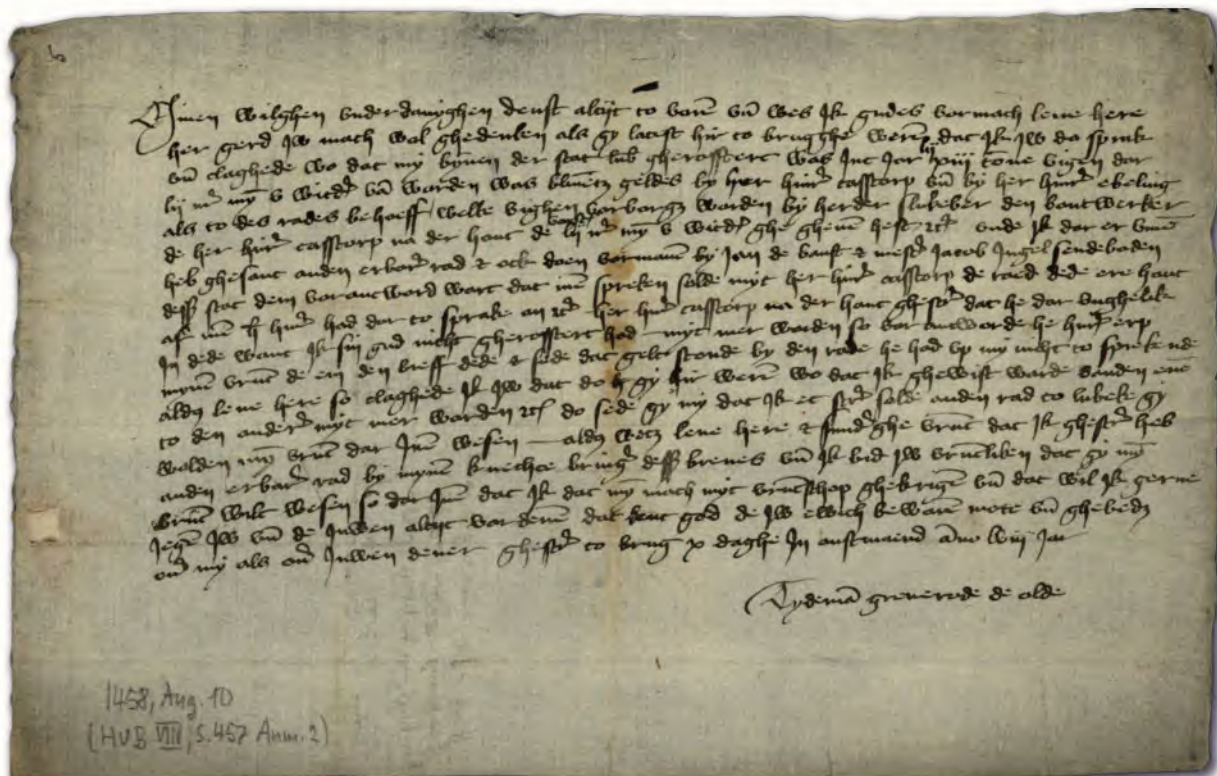 6
Minen wilghen underdanyghen denst altijt to vorn vnd wes Jk gudes vormach leve here
her gerd Jw mach wol ghedenken als gy latest hir to brugghe weren dat Jk Jw do sprak
vnd claghede wo dat my bynnen der stat lub gherosteert was Jnt Jar lij xviij tone vigen dar
lij mr my v witd vnd worden was geldes by her hinr casstorp vnd by her hinr ebeling
als to des rades behoeff welke vighen vorborgt worden by herder slukeber den bontwerker
de her hinr casstorp na der hant de vorscr lij mr my v witd ghe ghevin heft etc vnde Jk dar er
heb ghesant anden erbar rad & ock doen vormanen by Jan de banst & mester Jacob Jngel sendeboden
desser stat dem vorantword wart dat men spreken solde myt her hinr casstorp de raed dede ere hant
af men her hinr had dar to sprake an etc her hinr casstorp na der hant ghescr dat he dar
Jn dede want Jk sin gud nicht gherosteert had myt mer worden so vor antworde he hinr erp
mynen vrunt de em den breff dede & sede dat gelt stonde by den rade he had vp my nicht to sprekende
aldus leve here so claghede Jk Jw dat do gy hir weren wo dat Jk ghewist warde vanden enen
to den anderen myt mer worden etc do sede gy my dat Jk et scr solde anden rad to lubeke gy
wolden myn vrunt dar Jnne wesen aldus wetet leve here & sunderghe vrunt dat Jk ghescr heb
anden erbar rad by mynen knechte bringer desses breves vnd Jk bid Jw vruntliken dat gy myn
vrunt wilt wesen so dar Jnne dat Jk dat myn mach myt vruntschop ghekrigen vnd dat wil Jk gerne
Jegen Jw vnd de Juwen altijt vordenen dat kent god de Jw ewich bewaren mote vnd ghebeden
over my als over Juwen dener ghescr to brug x daghe Jn austmaend anno lviij Jar
Tydeman greverode de olde
1458, Aug. 10
(HUB VIII, S. 457 Anm. 2)